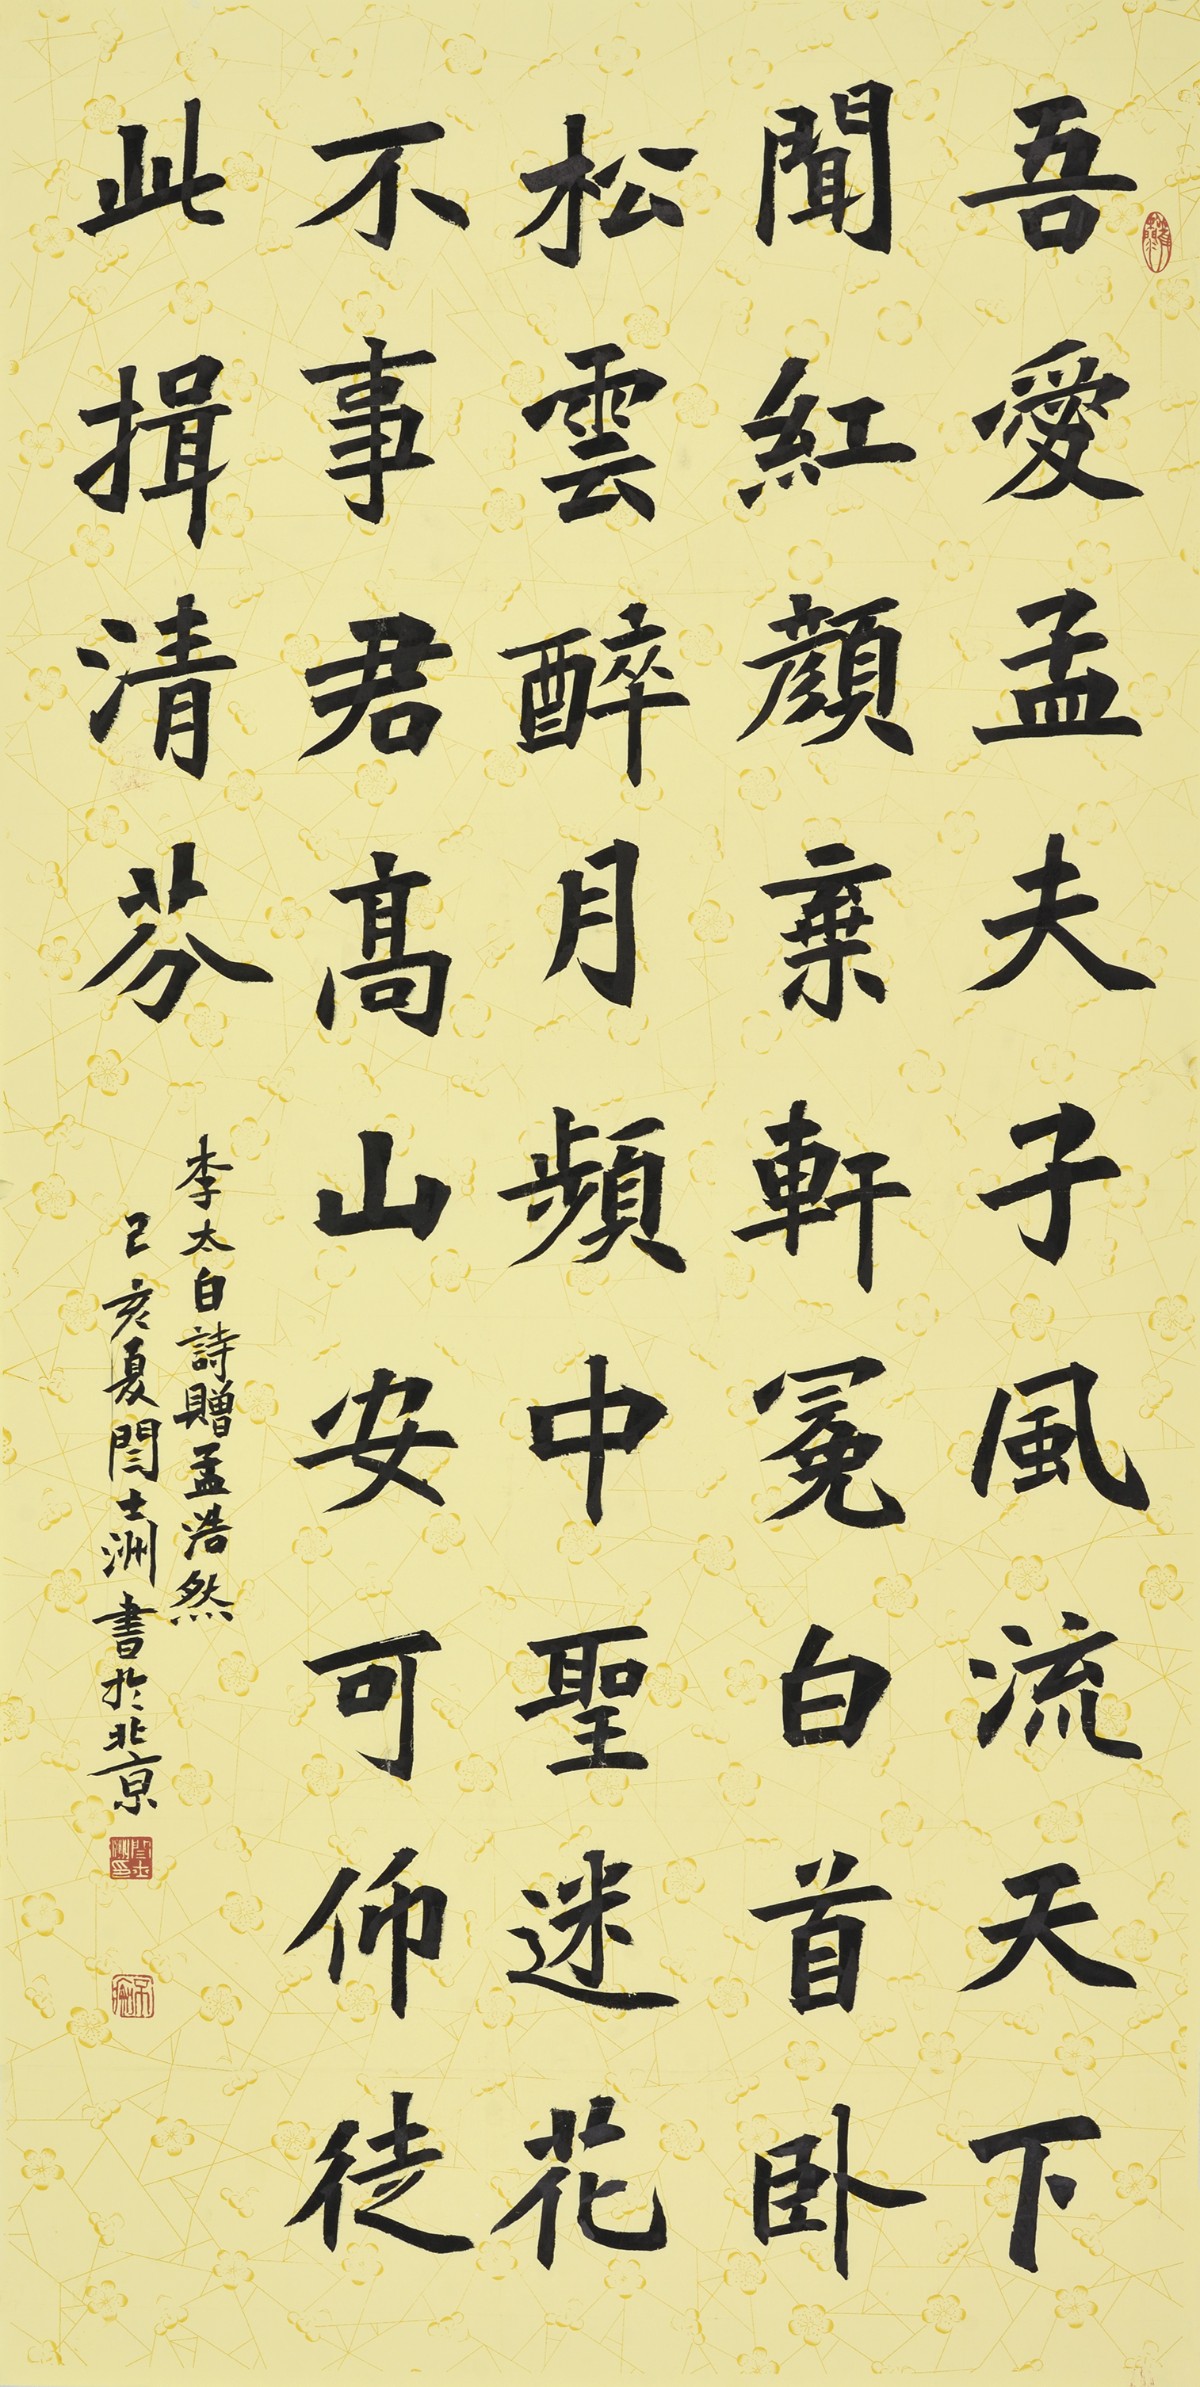 吾愛孟夫子風流天下
聞紅顏棄軒冕白首臥
松雲醉月頻中聖迷花
不事君高山安可仰徒
此揖清芬
李太白詩贈孟浩然
己亥夏閆士洲書於北京